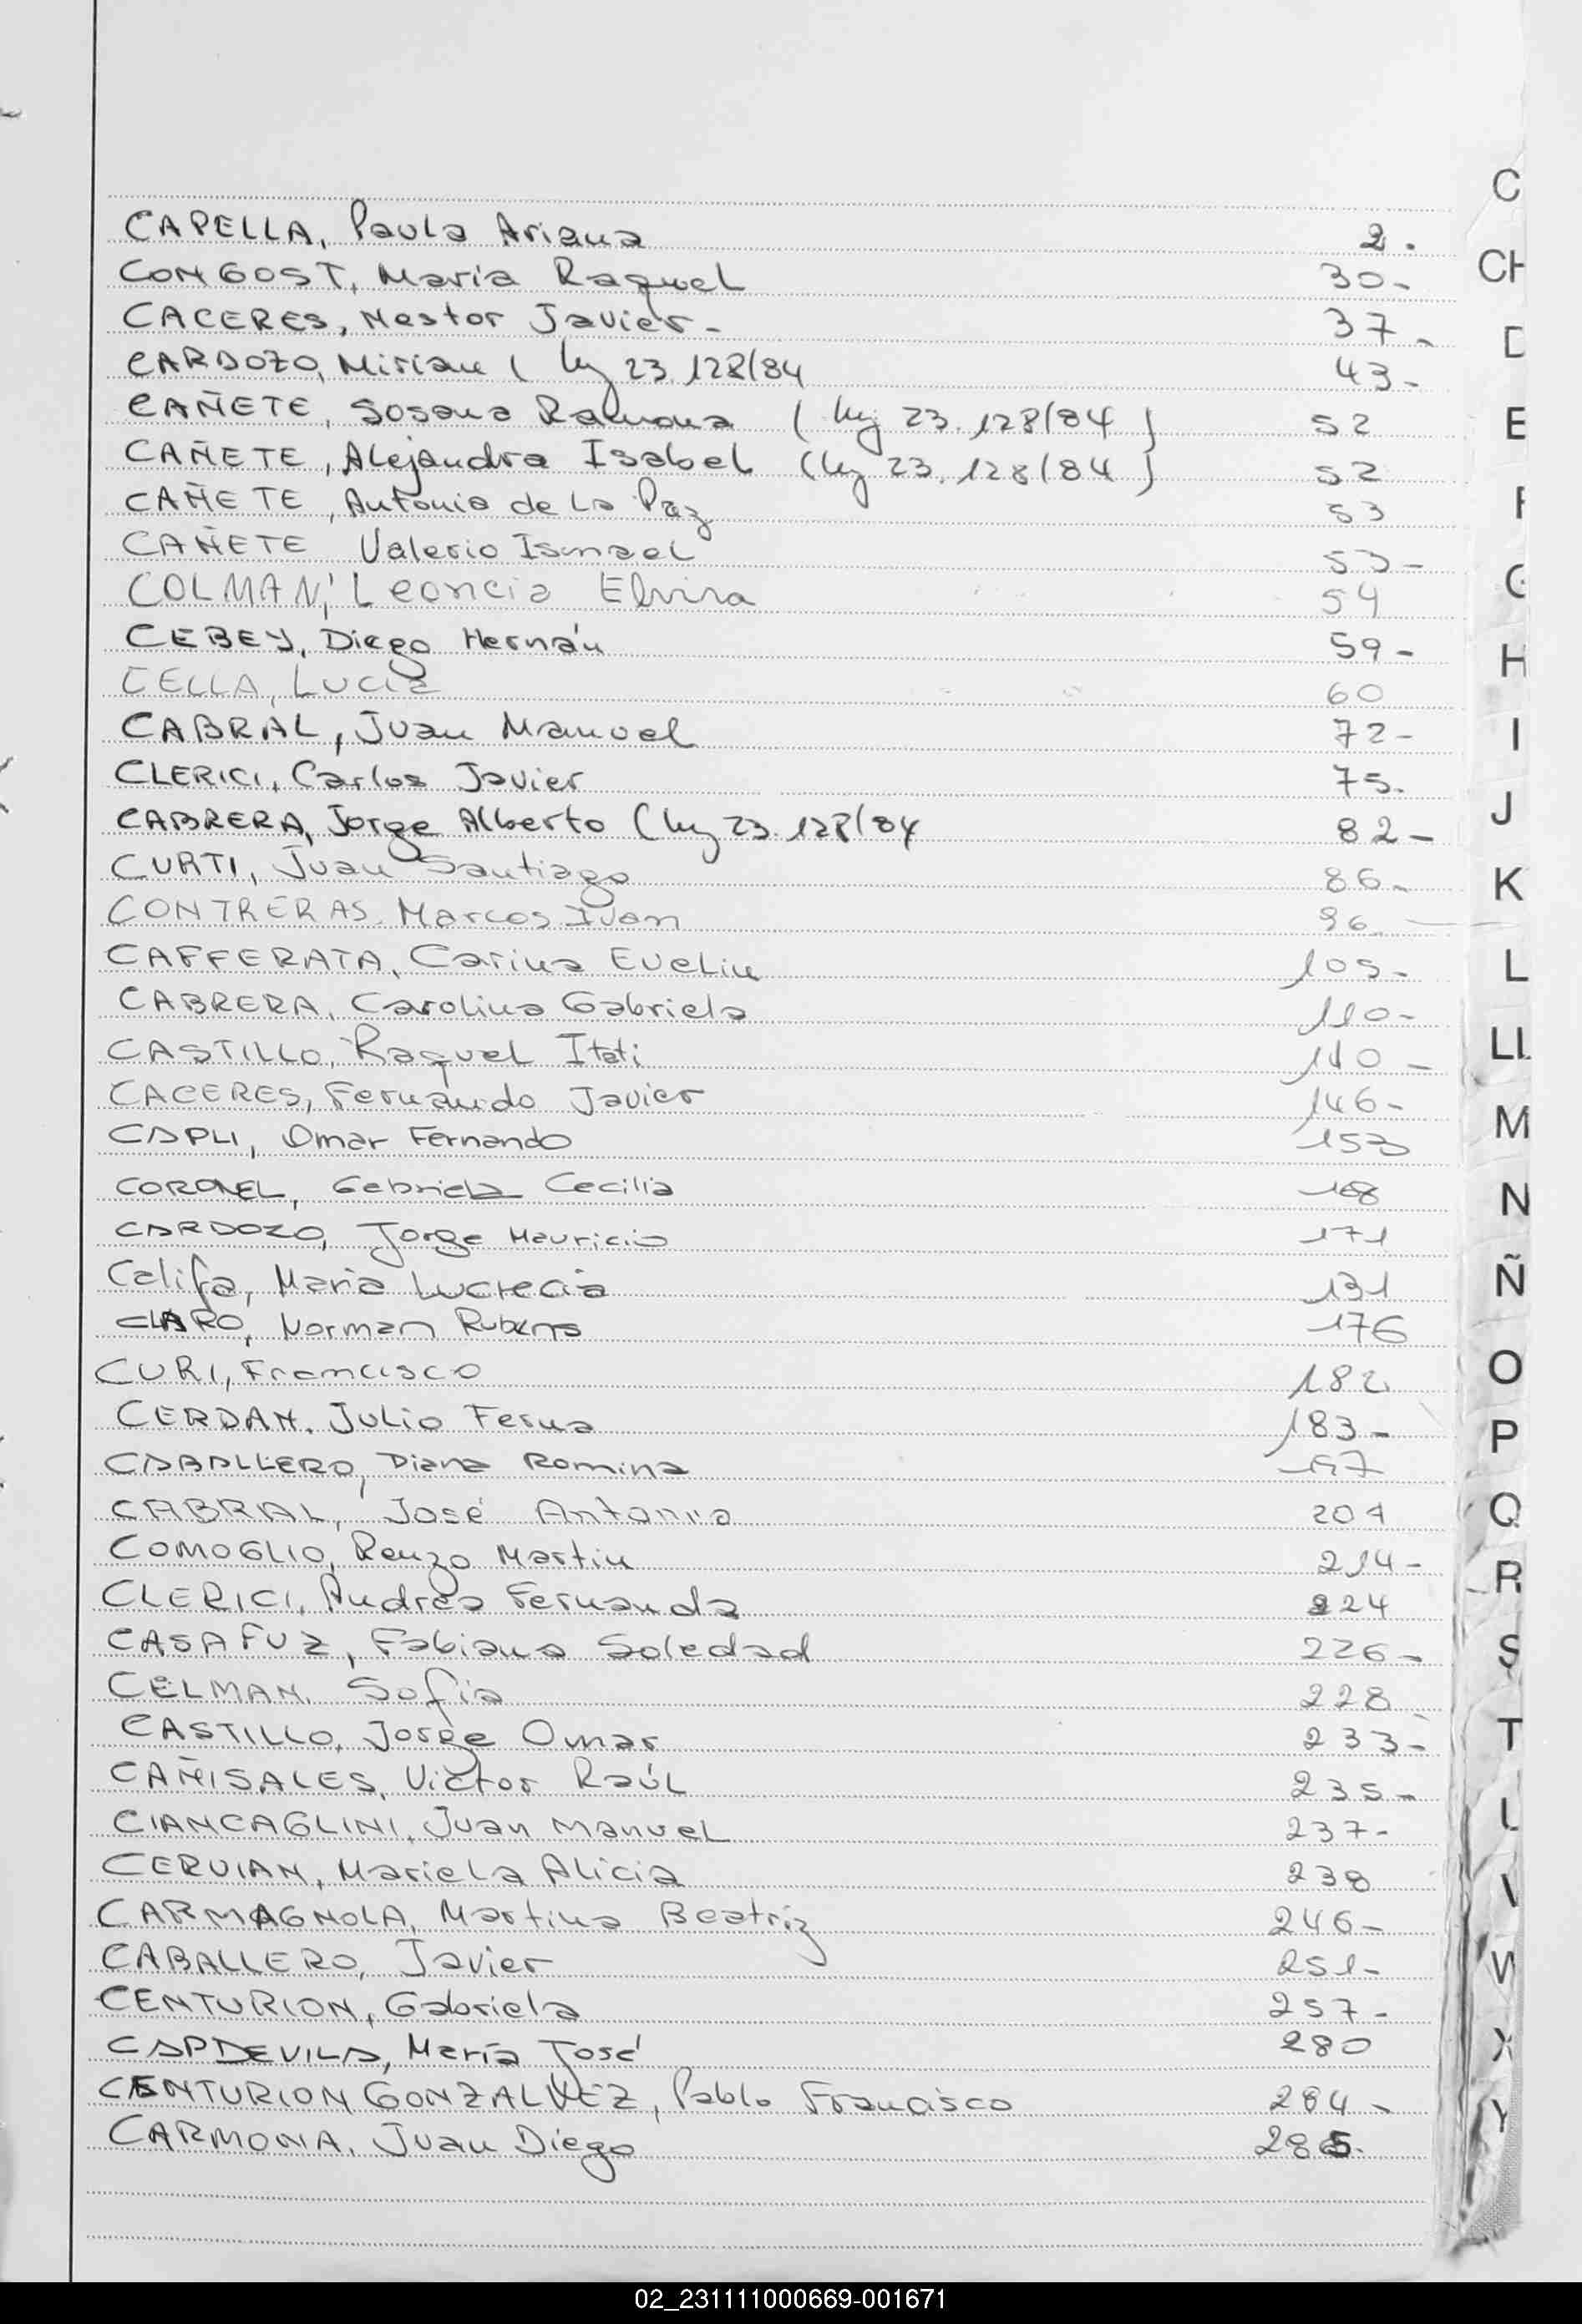 CAPELLA, Paula Ariana 2.
CONGOST, María Raquel 30-
CACERES, Nestor Javier- 37-
CARDOZO, Miriam ( ley 23.128/84 43-
CAÑETE, Sosana Ramona ( ley 23.128/84 ) 52
CAÑETE, Alejandra Isabel (ley 23.128/84 ) 52
CAÑETE, Antonia de La Paz 53
CAÑETE Valerio Ismael 53-
COLMAN, Leoncia Elvira 54
CEBEY, Diego Hernán 59-
CELLA, Lucia 60
CABRAL, Juan Manuel 72-
CLERICI, Carlos Javier 75-
CABRERA, Jorge Alberto (ley 23.128/84 82-
CURTI, Juan Santiago 86-
CONTRERAS Marcos Ivan 96
CAFFERATA, Carina Evelin 105-
CABRERA, Carolina Gabriela 110-
CASTILLO, Raquel Itati 140-
CACERES, Fernando Javier 146-
CAPLI, Omar Fernando 153
CORONEL, Gabriela Cecilia 168
CARDOZO, Jorge Mauricio 171
Califa, Maria Lucrecia 131
CLARO, Norman Rubens 176
CURI, Francisco 182
CERDAN, Julio Ferna 183-
CABALLERO, Diana Romina 197
CABRAL, José Antonio 204
COMOGLIO, Renzo Martin 214-
CLERICI, Andrea Fernanda 224
CASAFUZ, Fabiana Soledad 226-
CELMAN, Sofia 228
CASTILLO, Jorge Omar 233-
CAÑISALES, Victor Raúl 235-
CIANCAGLINI, Juan Manuel 237-
CERVIAN, Mariela Alicia 238
CARMAGNOLA, Martina Beatriz 246-
CABALLERO, Javier 251-
CENTURION, Gabriela 257-
CAPDEVILA, María José 280
CENTURION GONZALVEZ, Pablo Francisco 284-
CARMONA, Juan Diego 285-
C
CH
D
E
F
G
H
I
J
K
L
LL
M
N
Ñ
O
P
Q
R
S
T
U
V
W
X
Y
02_231111000669-001671